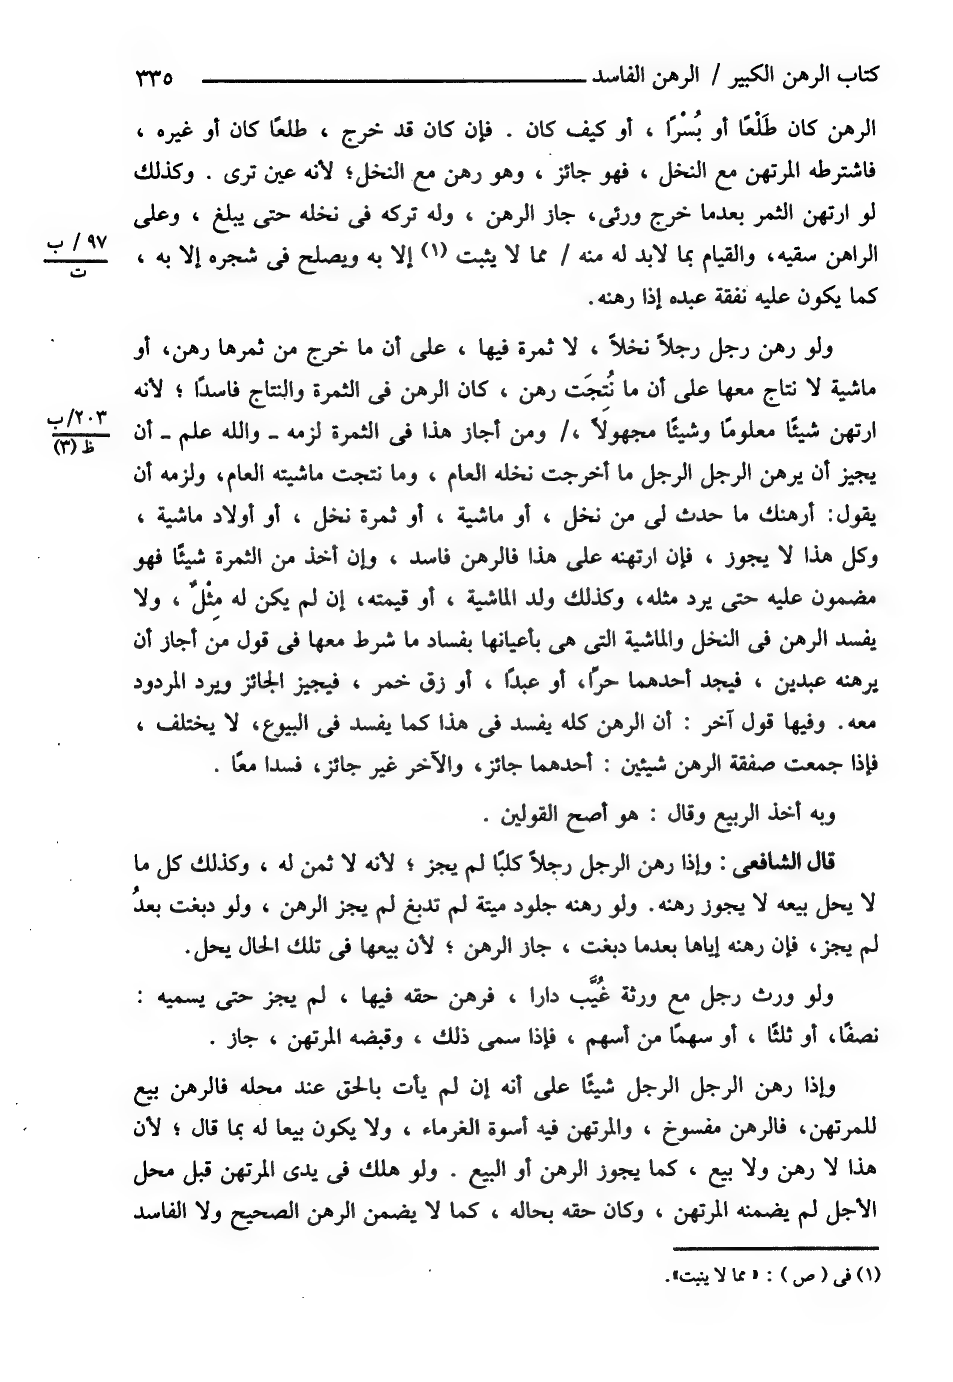 كتاب الرهن الكبير / الرهن الفاسد ٣٣٥
الرهن كان طَلْعًا أو بُسْرًا ، أو كيف كان . فإن كان قد خرج ، طلعًا كان أو غيره ،
فاشترطه المرتهن مع النخل ، فهو جائز ، وهو رهن مع النخل؛ لأنه عين ترى . وكذلك
لو ارتهن الثمر بعدما خرج ورئى، جاز الرهن ، وله تركه فى نخله حتى يبلغ ، وعلى
٩٧ / ب
ت
الراهن سقيه، والقيام بما لابد له منه / مما لا يثبت (١) إلا به ويصلح فى شجره إلا به ،
كما يكون عليه نفقة عبده إذا رهنه.
ولو رهن رجل رجلاً نخلاً ، لا ثمرة فيها ، على أن ما خرج من ثمرها رهن، أو
ماشية لا نتاج معها على أن ما نُتِجَت رهن ، كان الرهن فى الثمرة والنتاج فاسدًا ؛ لأنه
٢٠٣/ب
ظ (٣)
ارتهن شيئًا معلومًا وشيئًا مجهولاً ،/ ومن أجاز هذا فى الثمرة لزمه ـ والله علم ـ أن
يجيز أن يرهن الرجل الرجل ما أخرجت نخله العام ، وما نتجت ماشيته العام، ولزمه أن
يقول: أرهنك ما حدث لى من نخل ، أو ماشية ، أو ثمرة نخل ، أو أولاد ماشية ،
وكل هذا لا يجوز ، فإن ارتهنه على هذا فالرهن فاسد ، وإن أخذ من الثمرة شيئًا فهو
مضمون عليه حتى يرد مثله، وكذلك ولد الماشية ، أو قيمته، إن لم يكن له مِثْلٌ ، ولا
يفسد الرهن فى النخل والماشية التى هى بأعيانها بفساد ما شرط معها فى قول من أجاز أن
يرهنه عبدين ، فيجد أحدهما حرًا، أو عبدًا ، أو زق خمر ، فيجيز الجائز ويرد المردود
معه. وفيها قول آخر : أن الرهن كله يفسد فى هذا كما يفسد فى البيوع، لا يختلف ،
فإذا جمعت صفقة الرهن شيئين : أحدهما جائز، والآخر غير جائز، فسدا معًا .
وبه أخذ الربيع وقال : هو أصح القولين .
قال الشافعى : وإذا رهن الرجل رجلاً كلبًا لم يجز ؛ لأنه لا ثمن له ، وكذلك كل ما
لا يحل بيعه لا يجوز رهنه. ولو رهنه جلود ميتة لم تدبغ لم يجز الرهن ، ولو دبغت بعدُ
لم يجز، فإن رهنه إياها بعدما دبغت ، جاز الرهن ؛ لأن بيعها فى تلك الحال يحل.
ولو ورث رجل مع ورثة غُيَّب دارا ، فرهن حقه فيها ، لم يجز حتى يسميه :
نصفًا، أو ثلثًا ، أو سهمًا من أسهم ، فإذا سمى ذلك ، وقبضه المرتهن ، جاز .
وإذا رهن الرجل الرجل شيئًا على أنه إن لم يأت بالحق عند محله فالرهن بيع
للمرتهن، فالرهن مفسوخ ، والمرتهن فيه أسوة الغرماء ، ولا يكون بيعا له بما قال ؛ لأن
هذا لا رهن ولا بيع ، كما يجوز الرهن أو البيع . ولو هلك فى يدى المرتهن قبل محل
الأجل لم يضمنه المرتهن ، وكان حقه بحاله ، كما لا يضمن الرهن الصحيح ولا الفاسد
(١) فى ( ص ) : « مما لا ينبت».